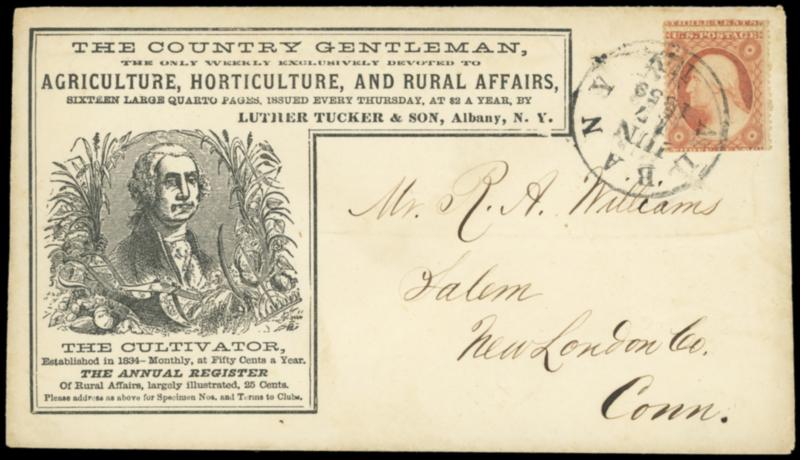 THE COUNTRY GENTLEMAN,
THE ONLY WEEKLY EXCLUSIVELY DEVOTED TO
AGRICULTURE, HORTICULTURE, AND RURAL AFFAIRS,
SIXTEEN LARGE QUARTO PAGES, ISSUED EVERY THURSDAY, AT $2 A YEAR, BY
LUTHER TUCKER & SON, Albany, N. Y.
THE CULTIVATOR,
Established in 1834—Monthly, at Fifty Cents a Year.
THE ANNUAL REGISTER
Of Rural Affairs, largely illustrated, 25 Cents.
Please address as above for Specimen Nos. and Terms to Clubs.
THREE CENTS
U.S. POSTAGE
THREE CENTS
ALBANY
JUN
7
Mr. R. A. Williams
Salem
New London Co.
Conn.